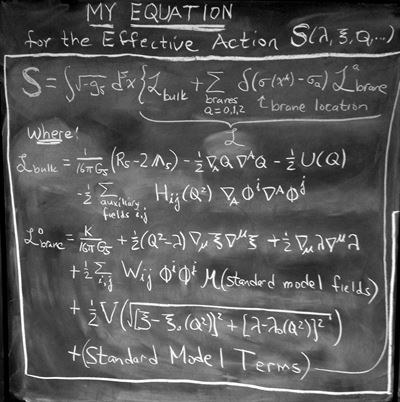 MY EQUATION
for the Effective Action S(λ, ξ, Q, ...)
S = ∫√-g₅ d⁵x { ℒ_bulk + Σ_{branes a=0,1,2} δ(σ(x^A) - σₐ) ℒ^a_brane
↑ brane location
ℒ
Where:
ℒ_bulk = 1/(16πG₅) (R₅ - 2Λ₅) - ½ ∇_A Q ∇^A Q - ½ U(Q)
- ½ Σ_{auxiliary fields i,j} H_ij(Q²) ∇_A Φ^i ∇^A Φ^j
ℒ^0_brane = K/(16πG₅) + ½ (Q² - λ) ∇_μ ξ ∇^μ ξ + ½ ∇_μ λ ∇^μ λ
+ ½ Σ_{i,j} W_ij Φ^i Φ^j M(standard model fields)
+ ½ V(√([ξ - ξ₀(Q²)]² + [λ - λ₀(Q²)]²))
+ (Standard Model Terms)